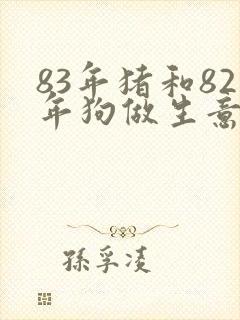 83年猪和82
年狗做生意
孫孚凌